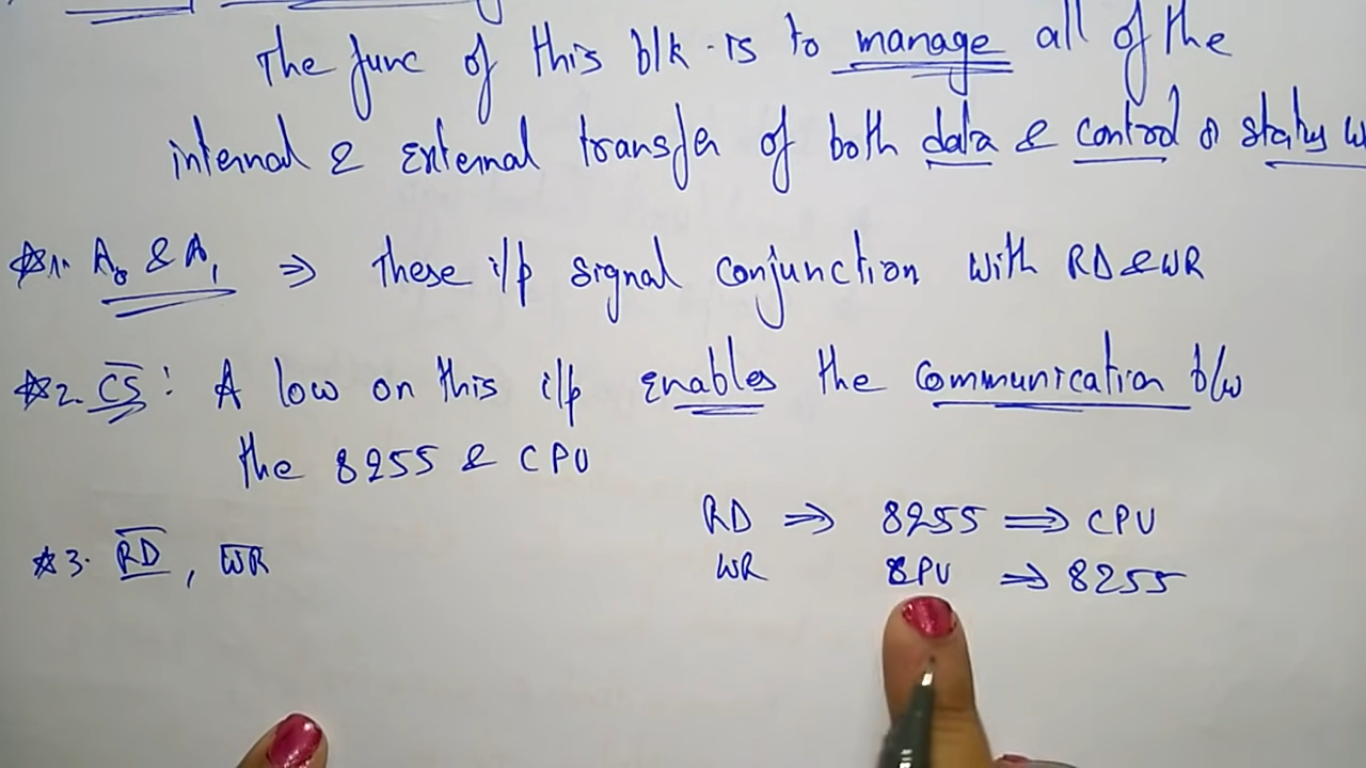 The func of this blk is to manage all of the
internal & External transfer of both data & control & status
☆1. A₀ & A₁ ⇒ these i/p signal conjunction with RD & WR
☆2. C̅S̅ : A low on this i/p Enables the communication b/w
the 8255 & CPU
RD ⇒ 8255 ⇒ CPU
☆3. R̅D̅, W̅R̅
WR CPU ⇒ 8255